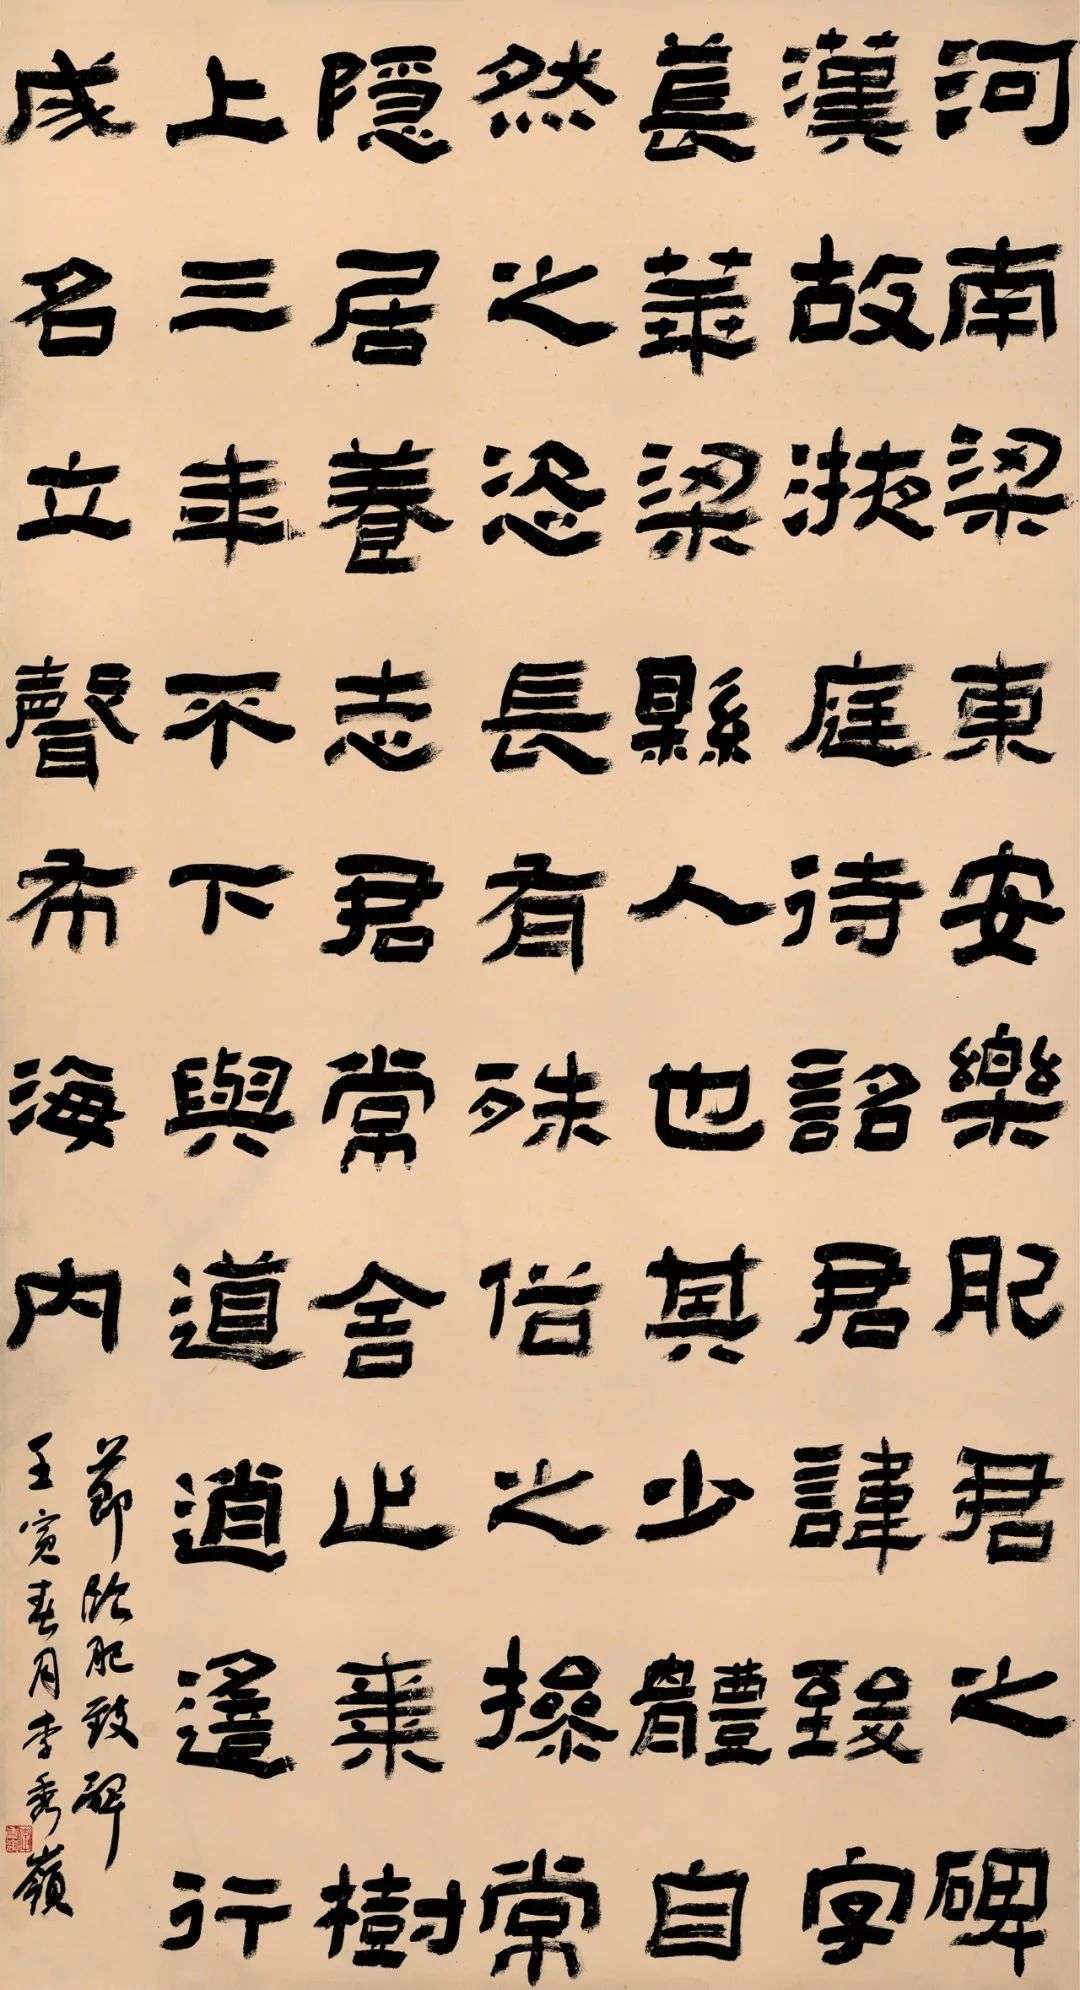 河南梁東安樂肥君之碑
漢故掖庭待詔君諱致字
萇華梁縣人也其少體自
然之恣長有殊俗之操常
隱居養志君常舍止棗樹
上三年不下與道逍遙行
成名立聲布海內
節臨肥致碑
壬寅春月李秀嶺